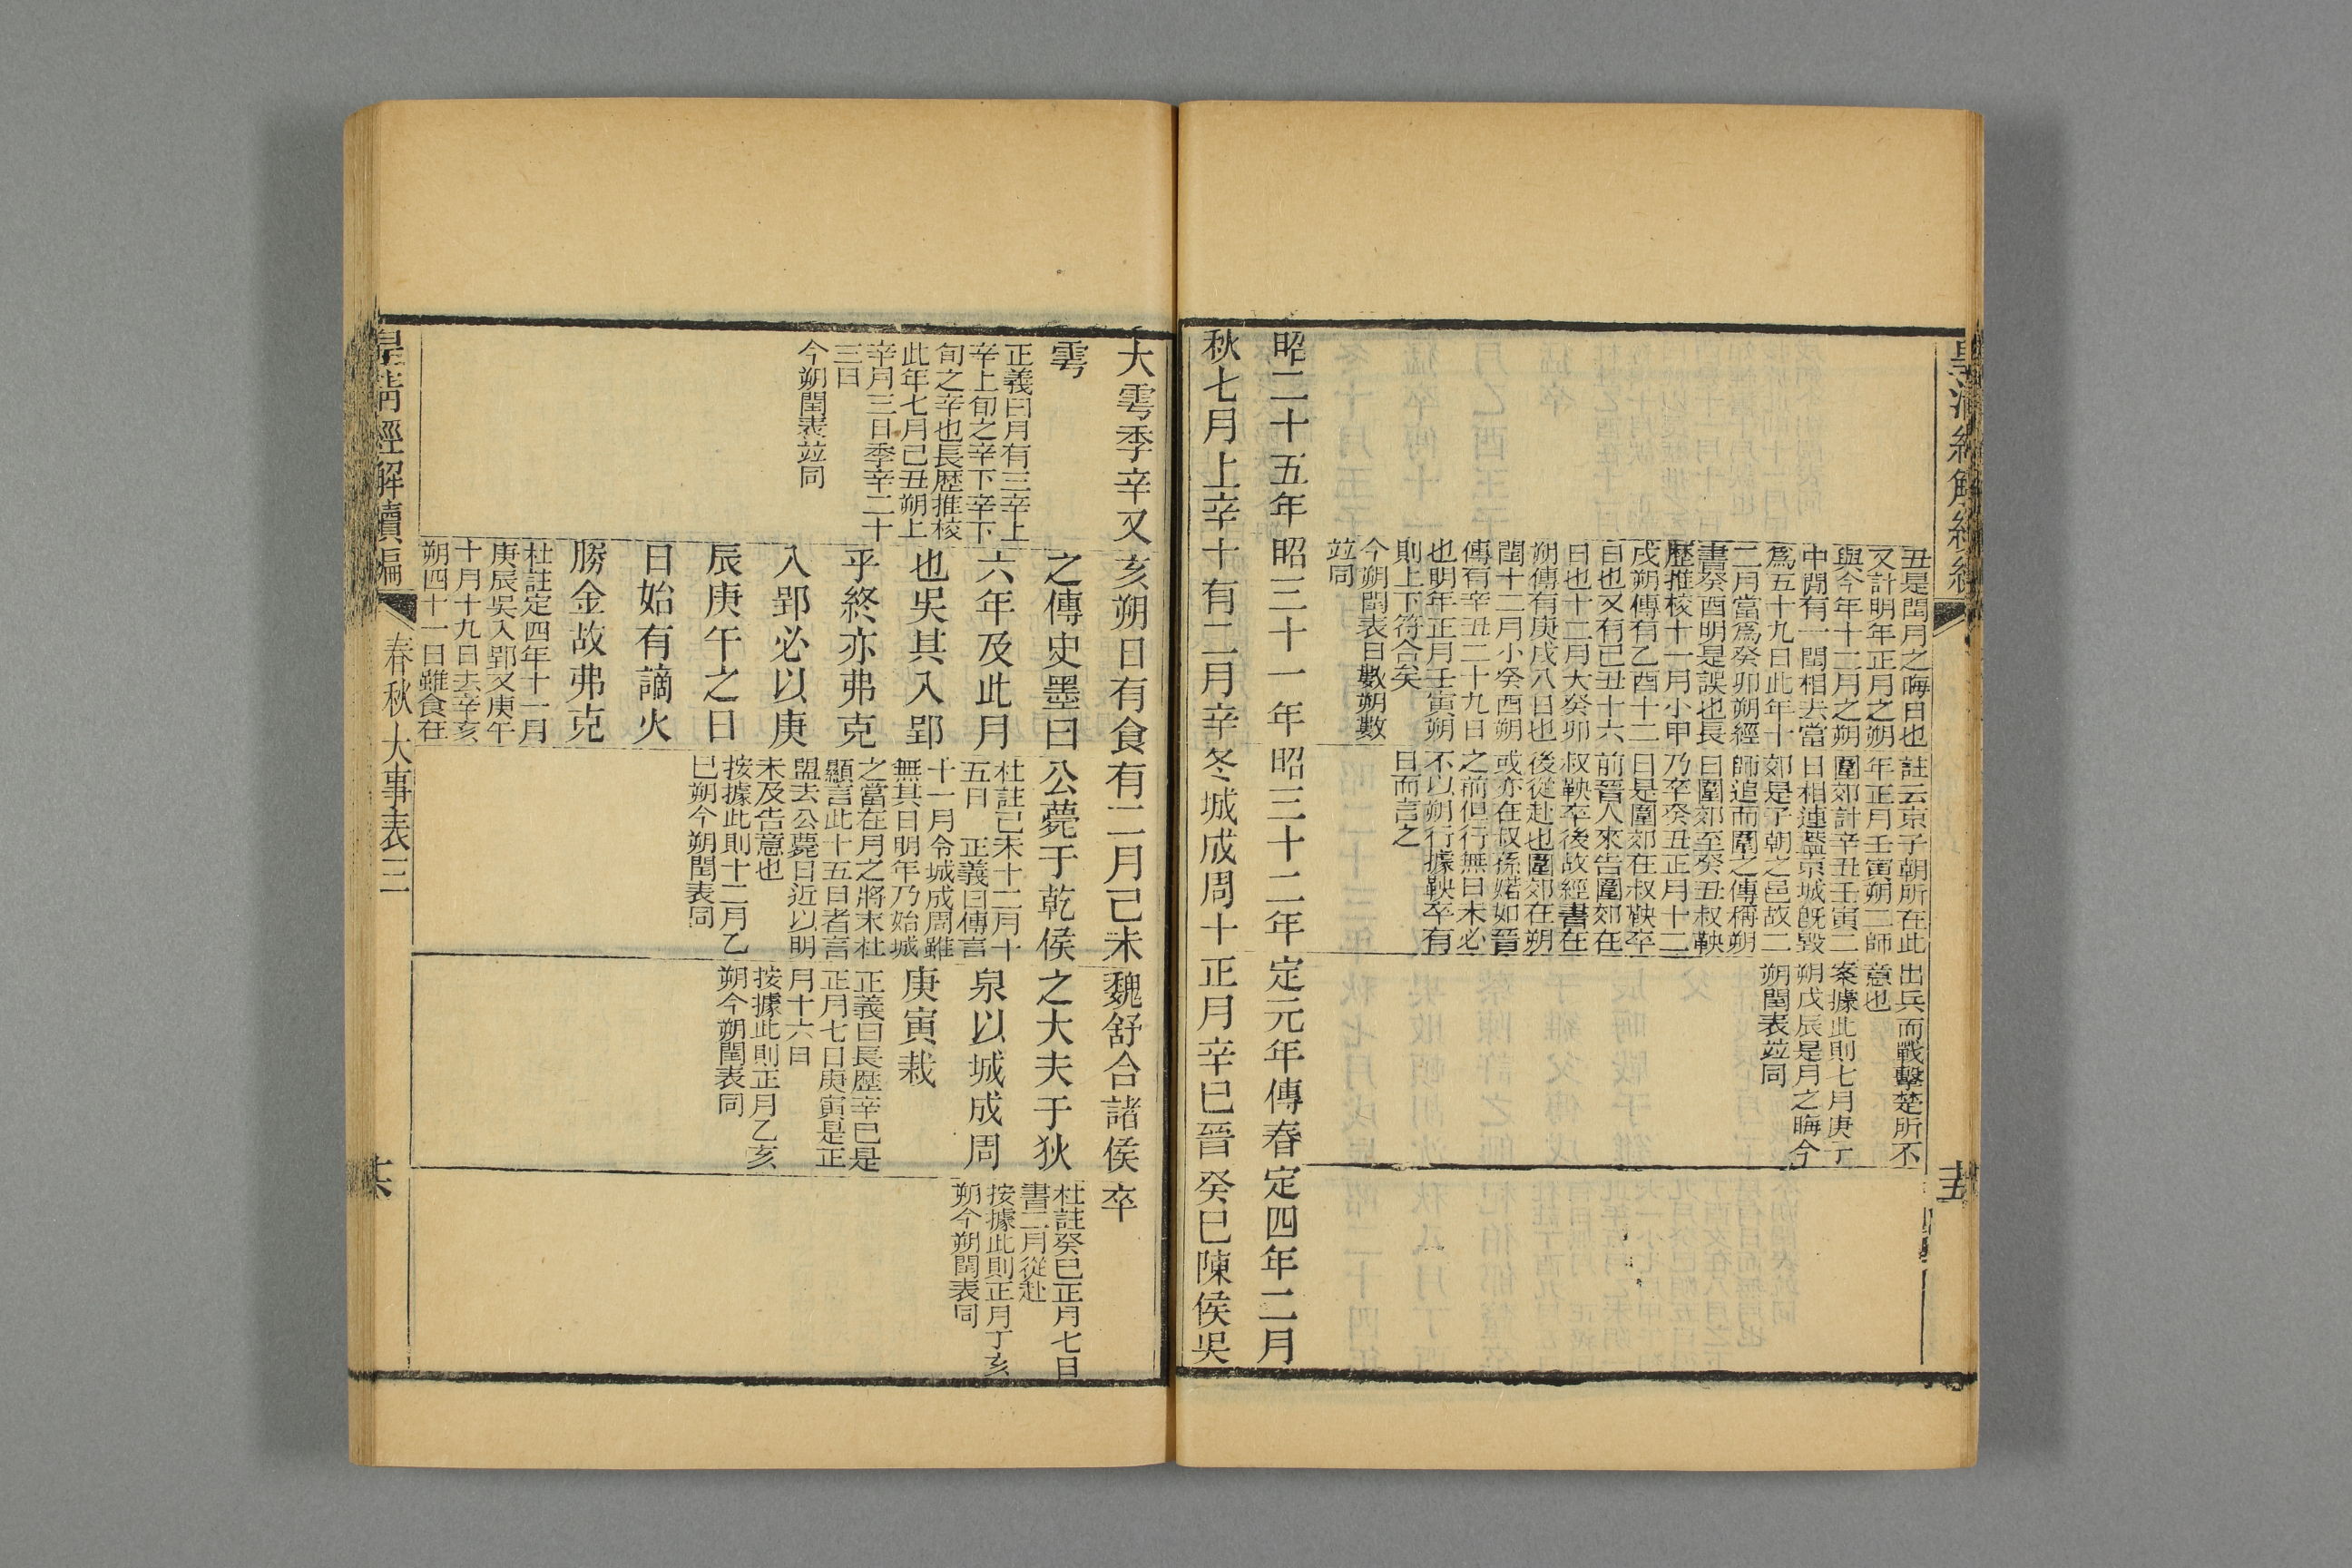 皇清經解續編
丑是閏月之晦日也
又計明年正月之朔
與今年十二月之朔
中閒有一閏相去當
爲五十九日此年十
二月當爲癸卯朔經
書癸酉明是誤也長
歷推校十一月小甲
戌朔傳有乙酉十二
日也又有己丑十六
日也十二月大癸卯
朔傳有庚戌八日也
閏十二月小癸酉朔
傳有辛丑二十九日
也明年正月壬寅朔
則上下符合矣
今朔閏表日數朔數
竝同
註云京子朝所在此
年正月壬寅朔二師
圍郊計辛丑壬寅二
日相連蓋京城旣毀
郊是子朝之邑故二
師追而圍之傳稱朔
日圍郊至癸丑叔鞅
乃卒癸丑正月十二
日是圍郊在叔鞅卒
前晉人來告圍郊在
叔鞅卒後故經書在
後從赴也圍郊在朔
或亦在叔孫婼如晉
之前但行無日未必
不以朔行據鞅卒有
日而言之
出兵而戰擊楚所不
意也
案據此則七月庚子
朔戊辰是月之晦今
朔閏表竝同
昭二十五年
秋七月上辛
昭三十一年
十有二月辛
昭三十二年
冬城成周十
定元年傳春
正月辛巳晉
定四年二月
癸巳陳侯吳
大雩季辛又
雩
正義曰月有三辛上
辛上旬之辛下辛下
旬之辛也長歷推校
此年七月己丑朔上
辛月三日季辛二十
三日
今朔閏表竝同
亥朔日有食
之傳史墨曰
六年及此月
也吳其入郢
乎終亦弗克
入郢必以庚
辰庚午之日
日始有謫火
勝金故弗克
杜註定四年十一月
庚辰吳入郢又庚午
十月十九日去辛亥
朔四十一日雖食在
有二月己未
公薨于乾侯
杜註己未十二月十
五日 正義曰傳言
十一月令城成周雖
無其日明年乃始城
之當在月之將末杜
顯言此十五日者言
盟去公薨日近以明
未及告意也
按據此則十二月乙
巳朔今朔閏表同
魏舒合諸侯
之大夫于狄
泉以城成周
庚寅栽
正義曰長歷辛巳是
正月七日庚寅是正
月十六日
按據此則正月乙亥
朔今朔閏表同
卒
杜註癸巳正月七日
書二月從赴
按據此則正月丁亥
朔今朔閏表同
皇淸經解續編
春秋大事表三